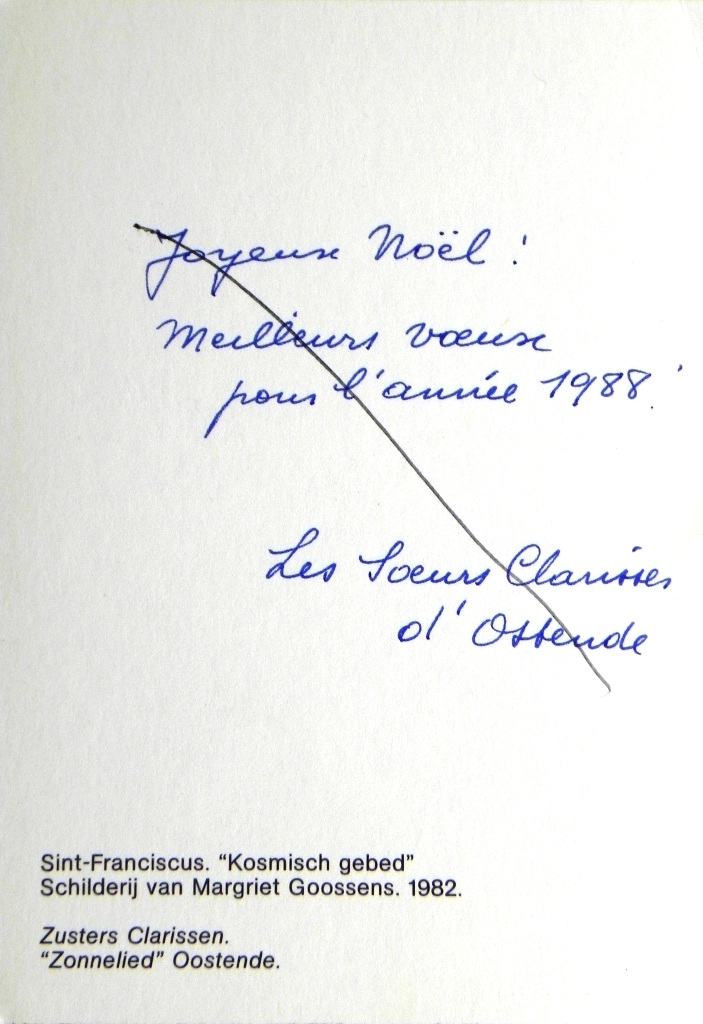 Joyeux Noël !
Meilleurs vœux
pour l'année 1988 !
Les Sœurs Clarisses
d'Ostende
Sint-Franciscus. “Kosmisch gebed”
Schilderij van Margriet Goossens. 1982.
Zusters Clarissen.
“Zonnelied” Oostende.